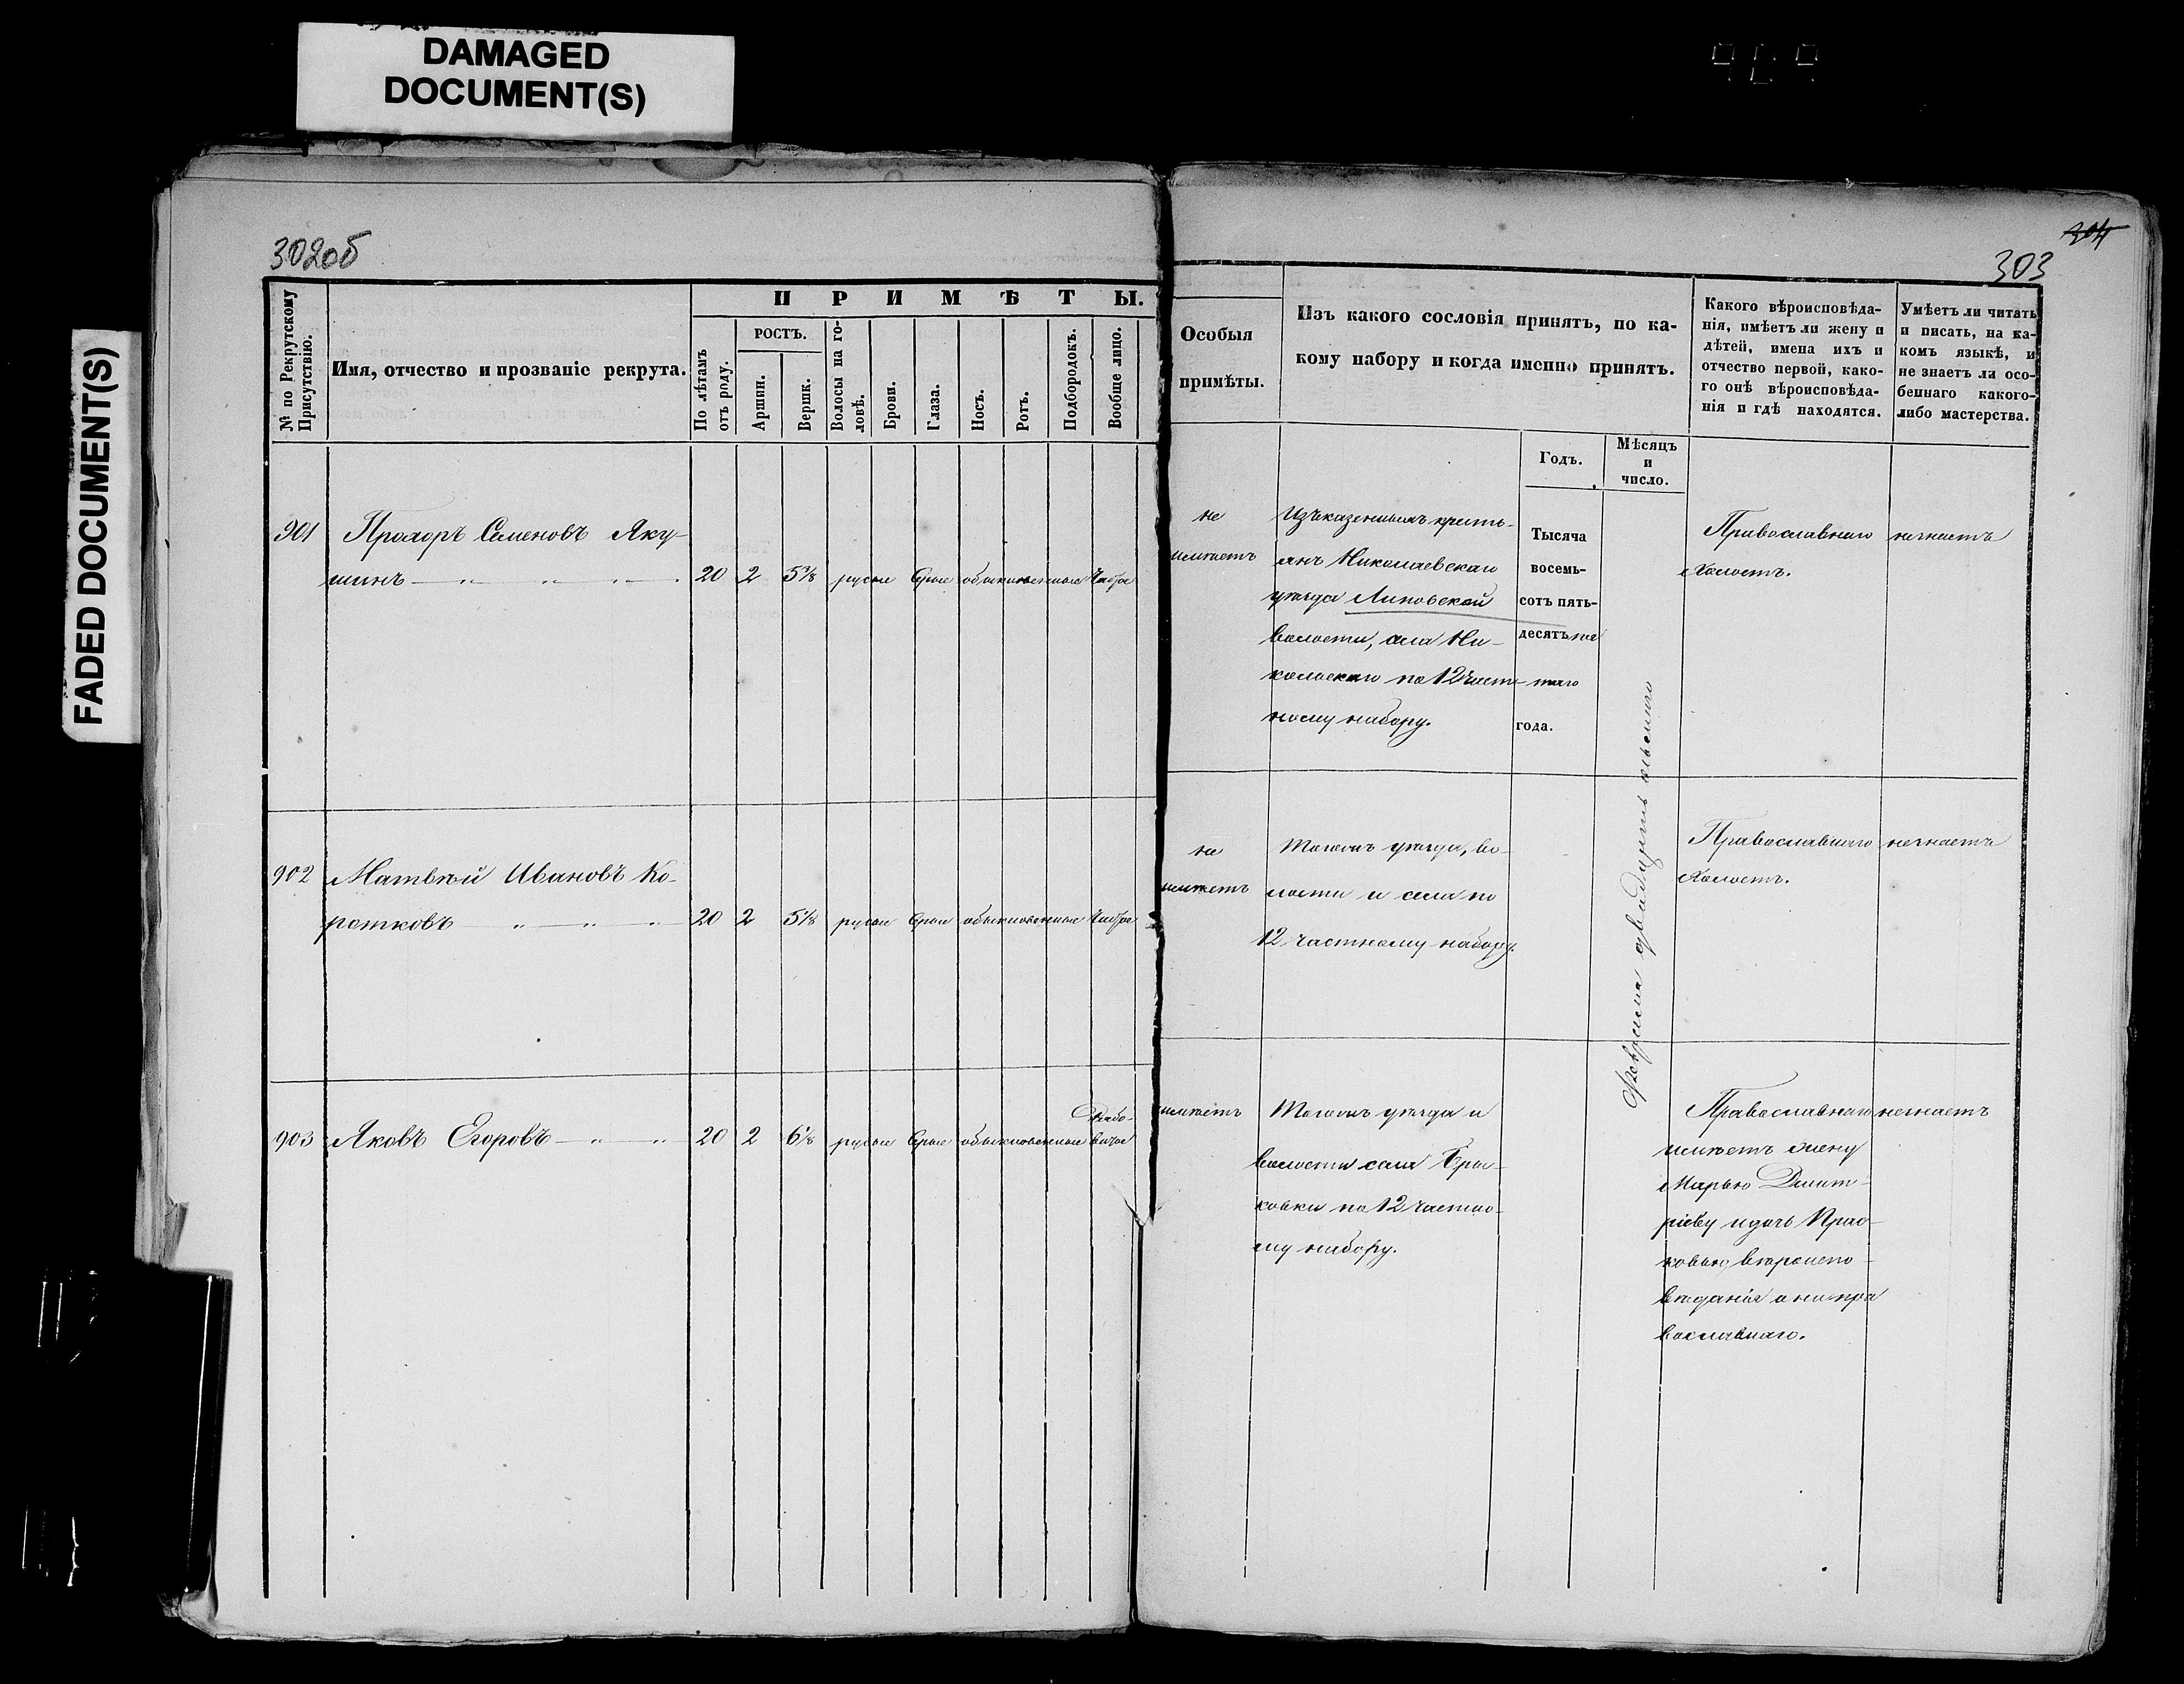 DAMAGED
DOCUMENT(S)
FADED DOCUMENT(S)
302об
304
303
№ по Рекрутскому
Присутствію.
Имя, отчество и прозваніе рекрута.
ПРИМѢТЫ.
По лѣтамъ
отъ роду.
РОСТЪ.
Аршин.
Вершк.
Волосы на го-
ловѣ.
Брови.
Глаза.
Носъ.
Ротъ.
Подбородокъ.
Вообще лицо.
Особыя
примѣты.
Изъ какого сословія принятъ, по ка-
кому набору и когда именно принятъ.
Годъ.
Мѣсяцъ
и
число.
Какого вѣроисповѣда-
нія, имѣетъ ли жену и
дѣтей, имена ихъ и
отчество первой, како-
го онѣ вѣроисповѣда-
нія и гдѣ находятся.
Умѣетъ ли читать
и писать, на ка-
комъ языкѣ, и
не знаетъ ли осо-
беннаго какого-
либо мастерства.
901 Прохоръ Семеновъ Яку-
шинъ 20 2 5⅛ русые Серые обыкновенные Чистое
не
имѣетъ
Изъ казенныхъ кресть-
янъ Николаевскаго
уѣзда Липовской
волости, села Ни-
кольскаго по 12 част-
ному набору.
Тысяча
восемь-
сотъ пять-
десятъ пя
таго
года.
Февраля двадцать осьмаго
Православнаго
Холостъ.
незнаетъ
902 Матвѣй Ивановъ Ко-
ротковъ 20 2 5⅛ русые Серые обыкновенные Чистое
не
имѣетъ
Тогожъ уѣзда, во-
лости и села по
12 частному набору.
Православнаго
Холостъ.
незнаетъ
903 Яковъ Егоровъ 20 2 6⅛ русые Серые обыкновенные Рябо-
ватое
имѣетъ
Тогожъ уѣзда и
волости села
ковки по 12 частно-
му набору.
Православнаго
имѣетъ жену
Марью Дмит-
ріеву и дочь Прас-
ковью, вѣроиспо-
вѣданія они пра
вославнаго.
незнаетъ